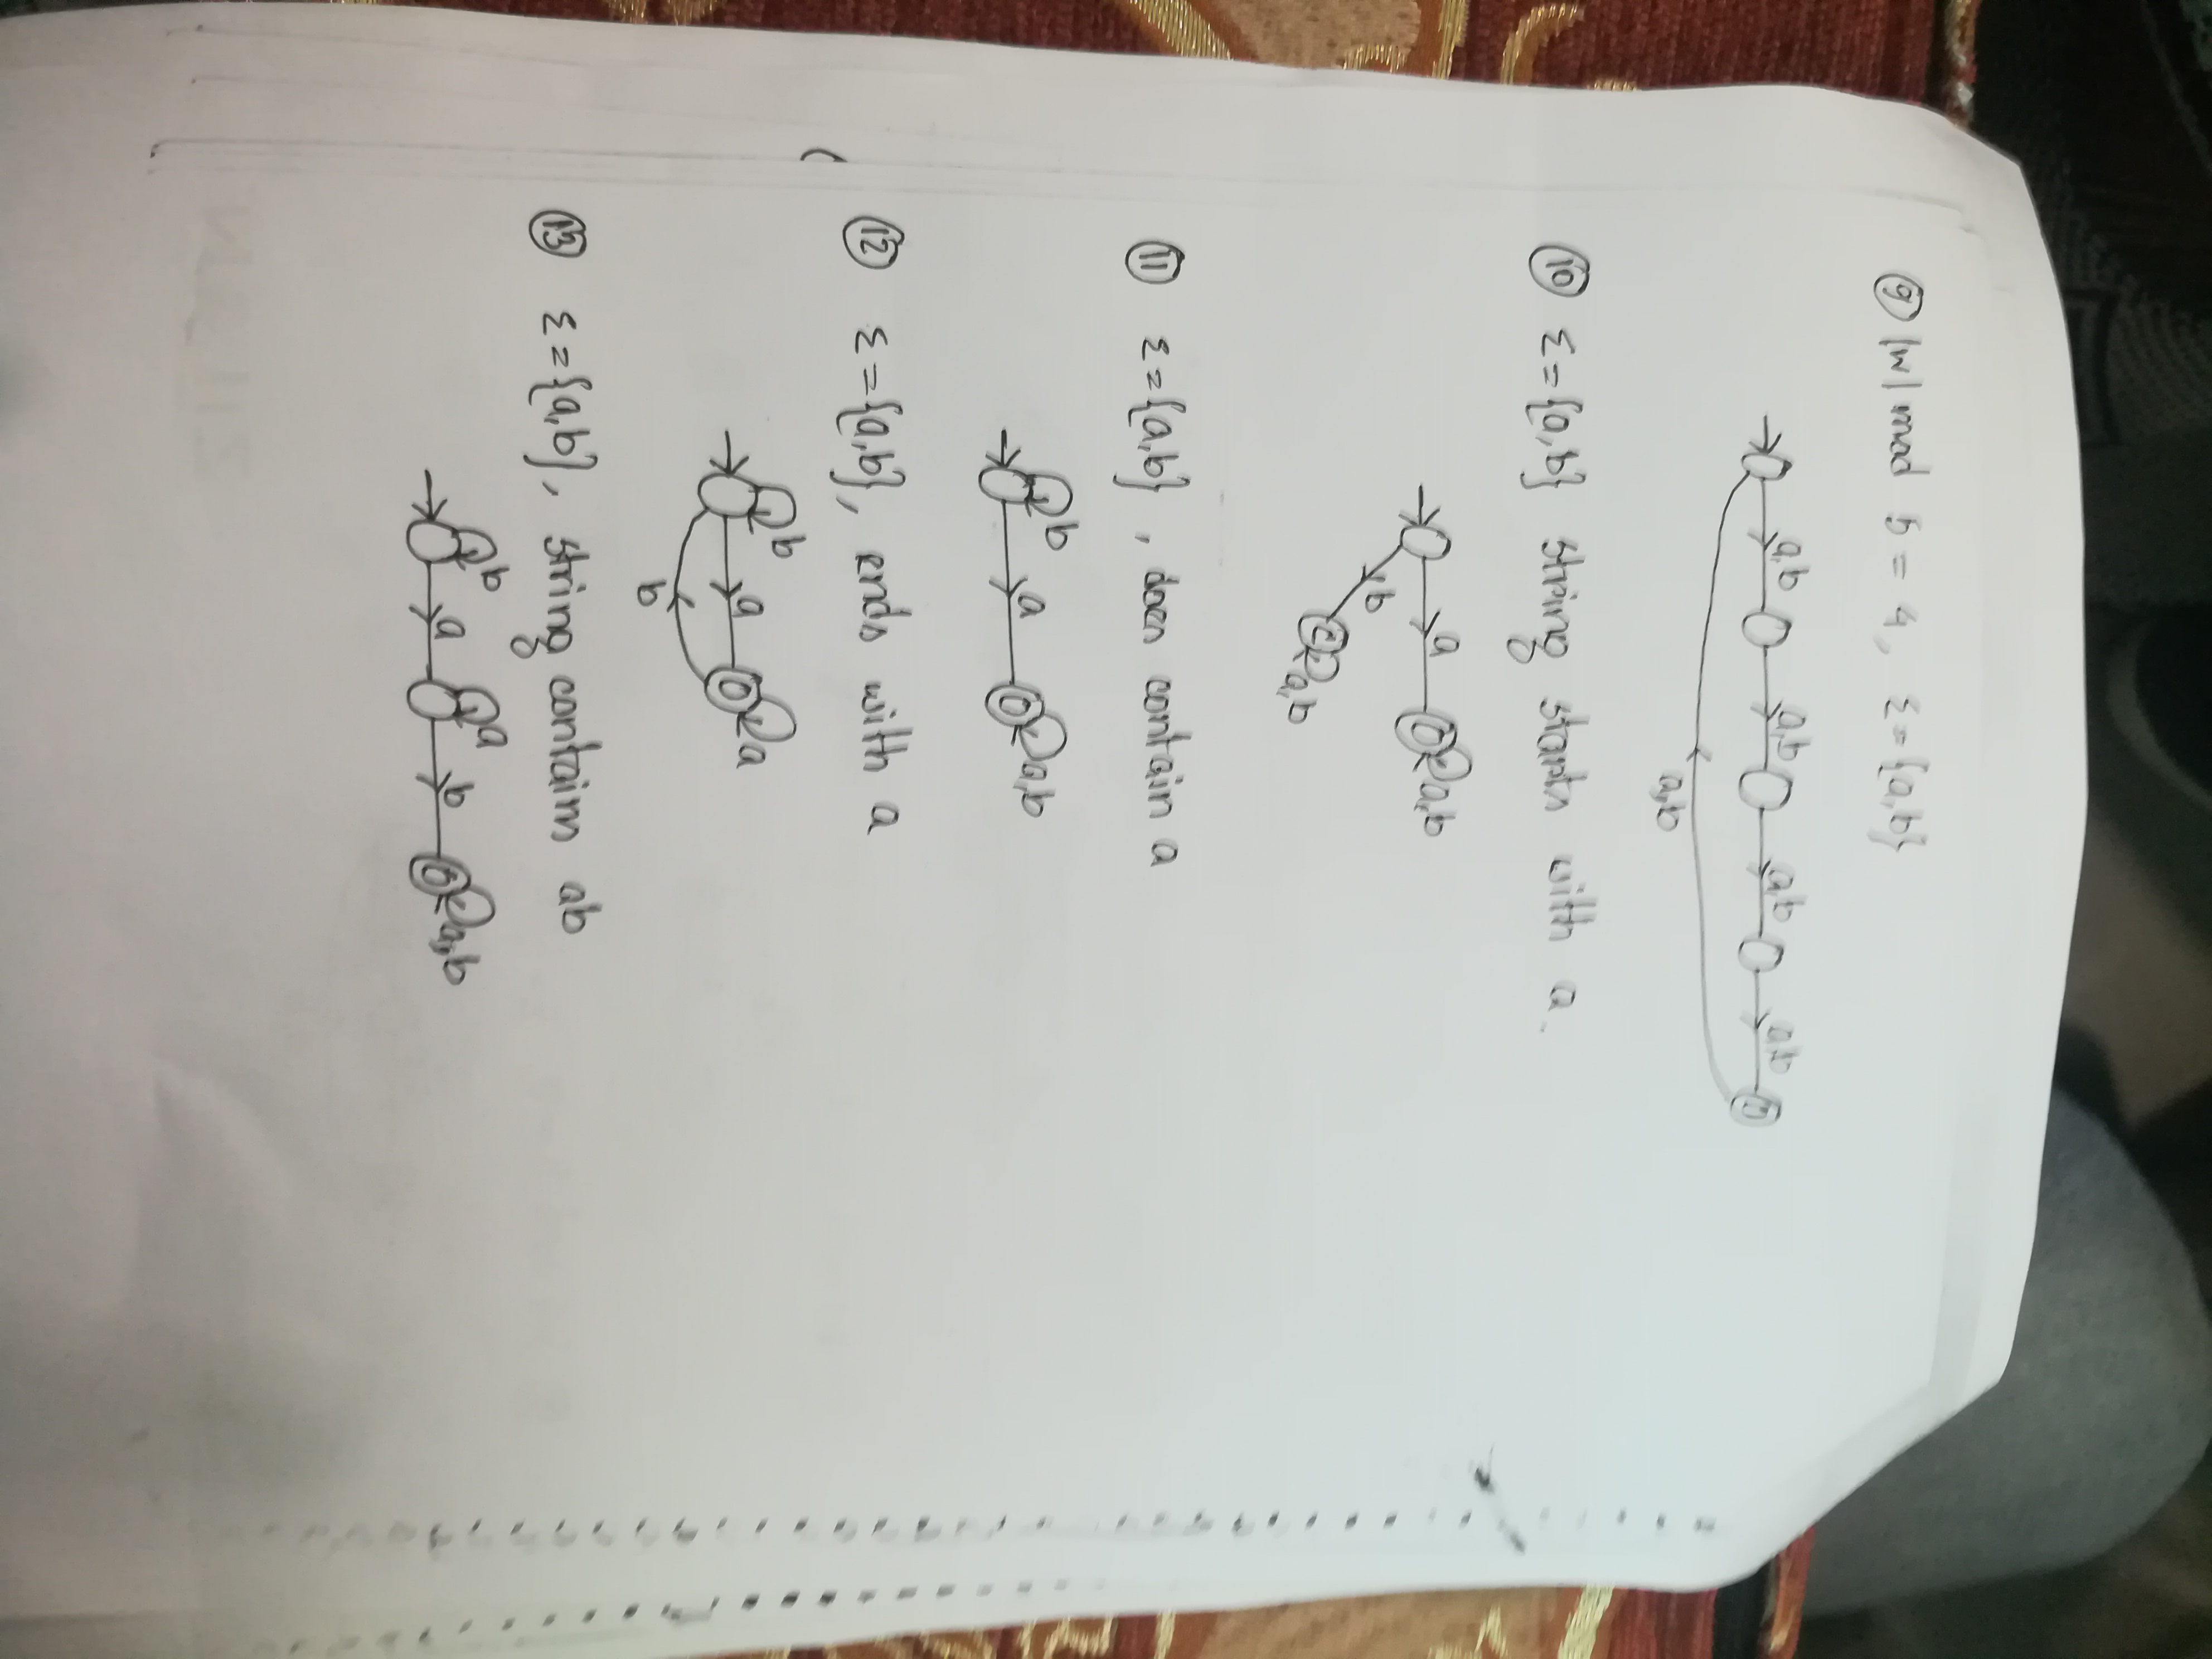 ⑨ |w| mod 5 = 4, Σ={a,b}
a,b a,b a,b a,b
a,b
⑩ Σ={a,b} string starts with a.
a a,b
b
a,b
⑪ Σ={a,b}, does contain a
b a a,b
⑫ Σ={a,b}, ends with a
b a a
b
⑬ Σ={a,b}, string contains ab
b a a b a,b